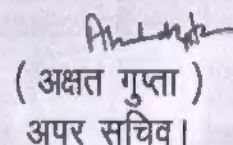 ( अक्षत गुप्ता )
अपर सचिव।